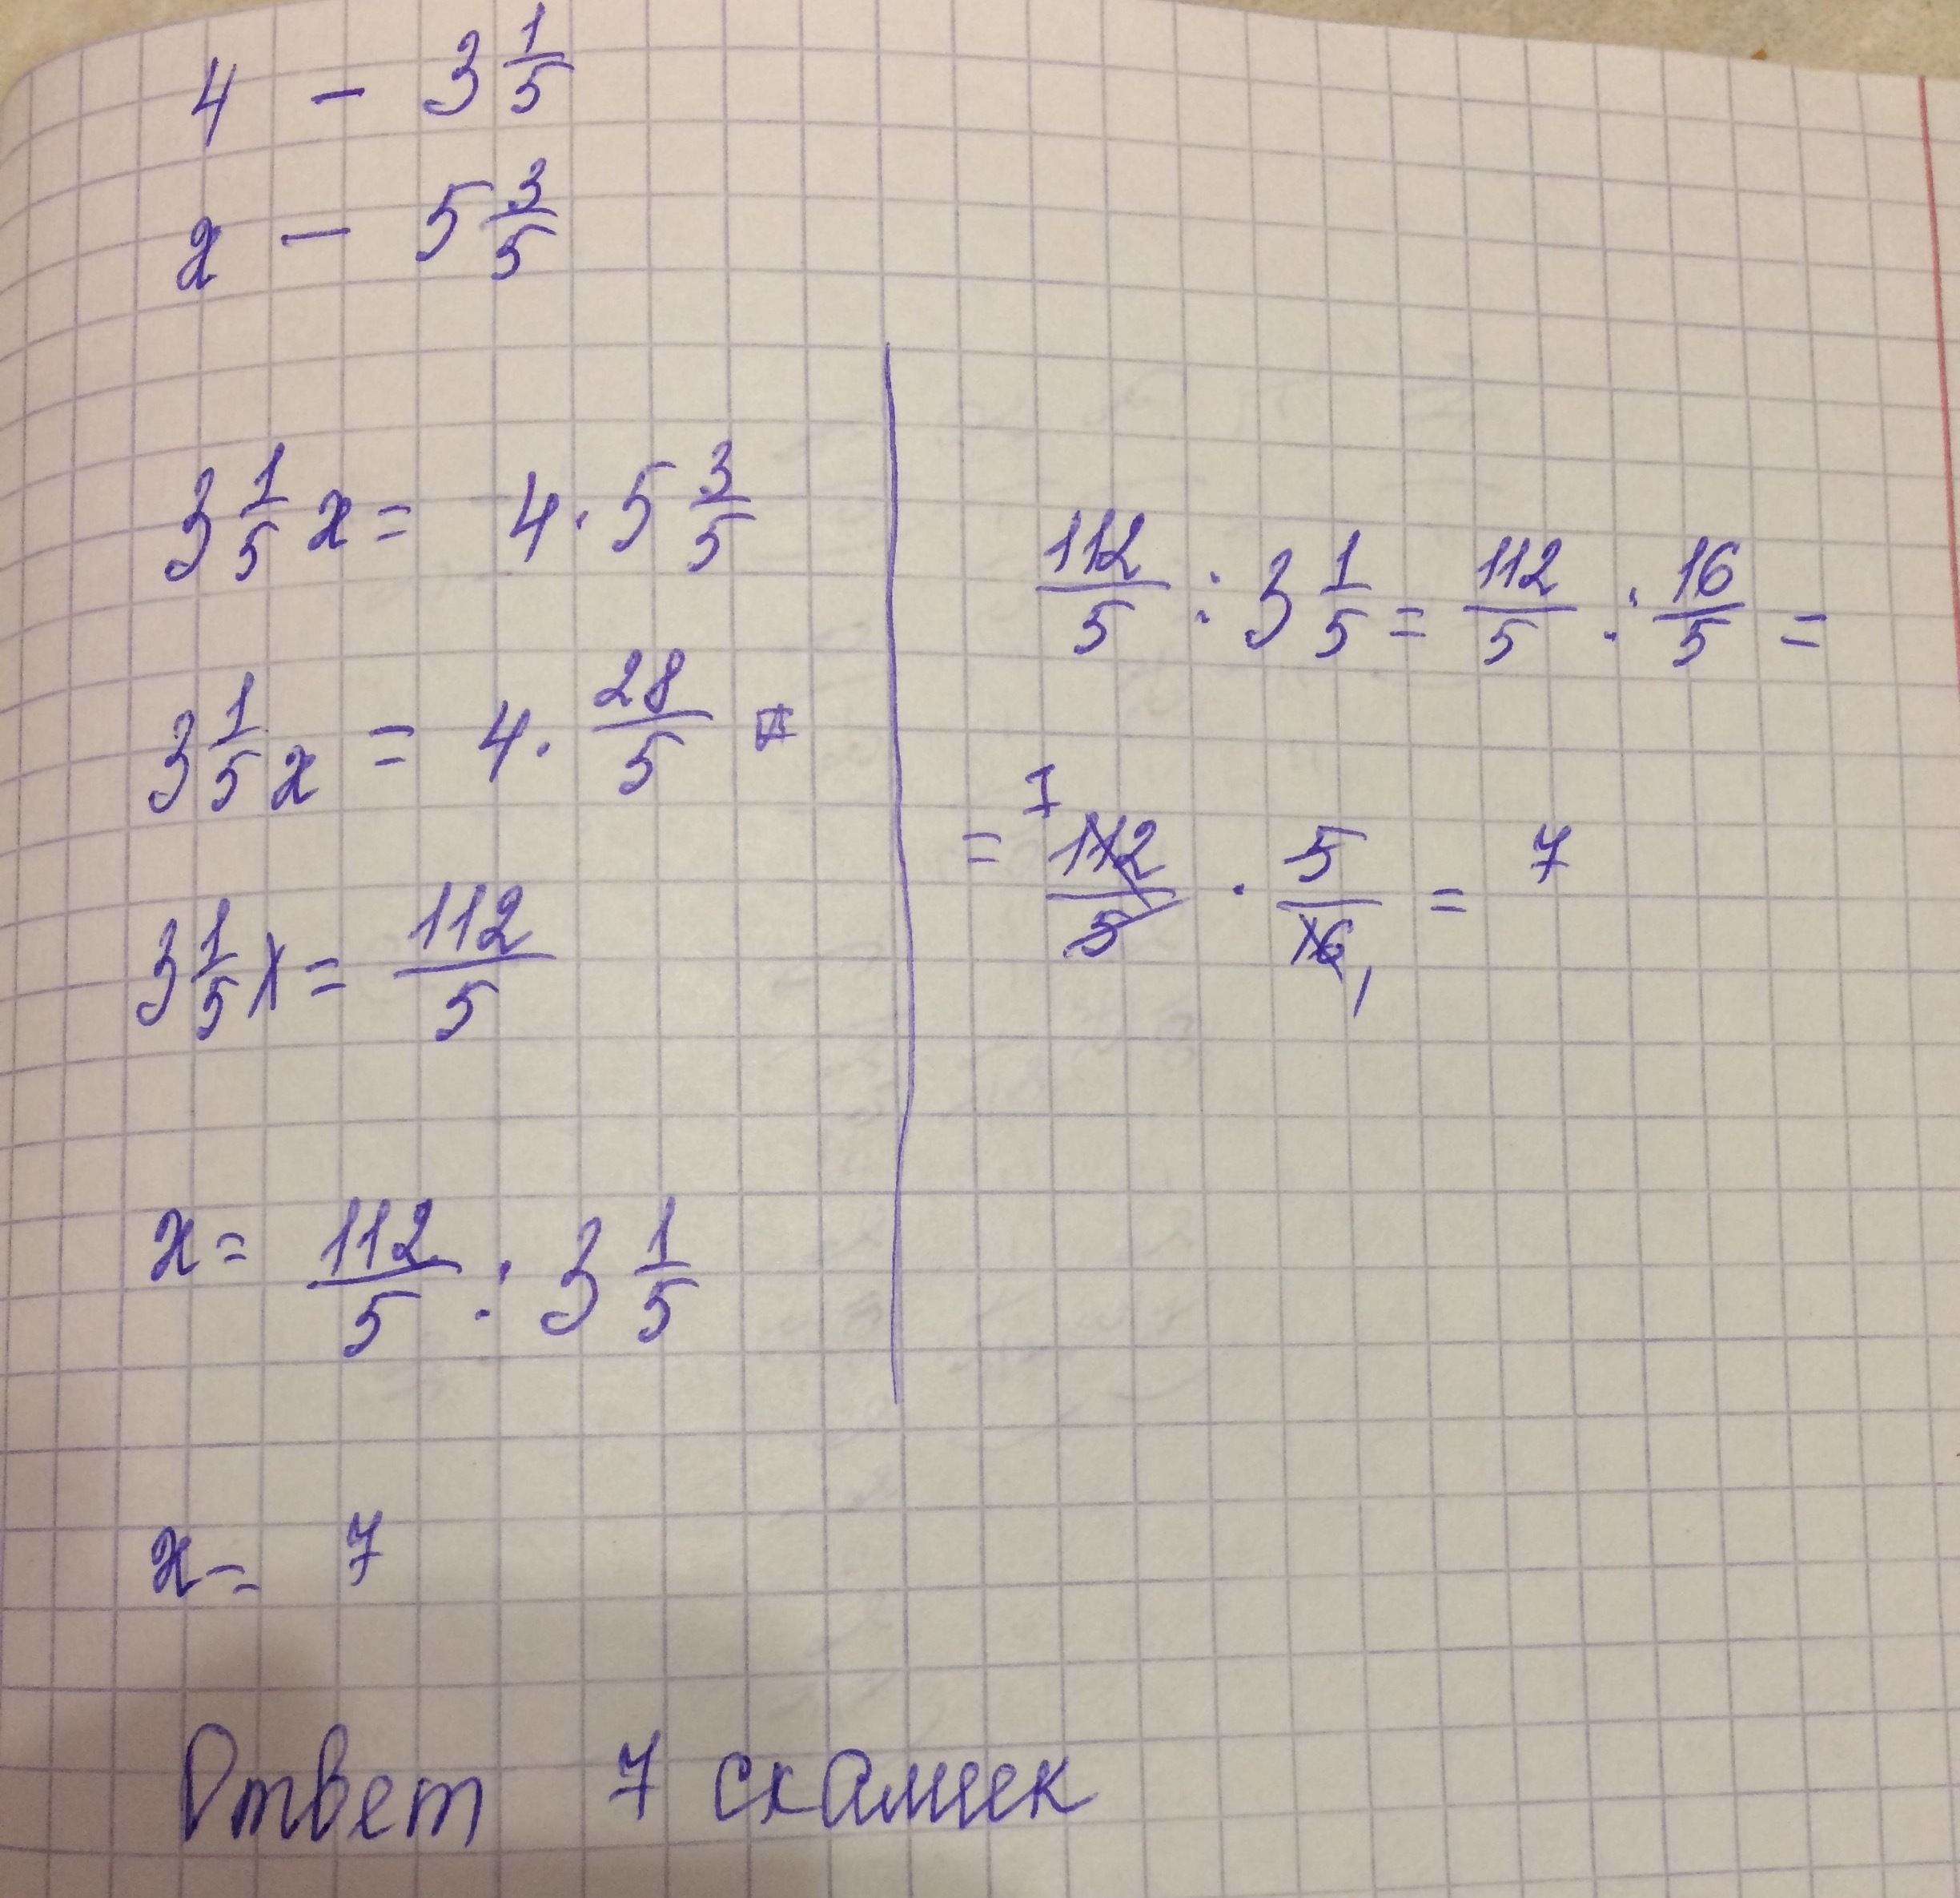 4 – 3 1/5
x – 5 3/5
3 1/5 x = 4 · 5 3/5
3 1/5 x = 4 · 28/5
3 1/5 x = 112/5
x = 112/5 : 3 1/5
x = 7
112/5 : 3 1/5 = 112/5 : 16/5 =
= 7 112/5 · 5/16 1 = 7
Ответ 7 скамеек